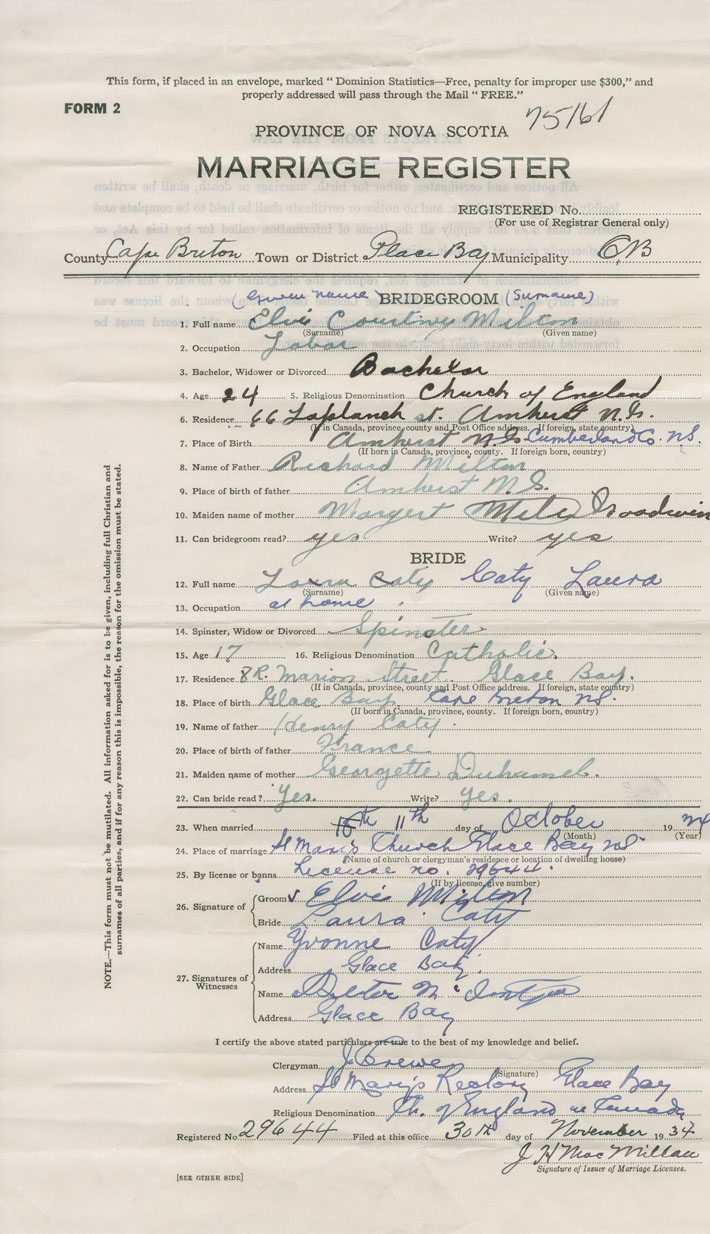 This form, if placed in an envelope, marked "Dominion Statistics—Free, penalty for improper use $300," and
properly addressed will pass through the Mail "FREE."
FORM 2
75161
PROVINCE OF NOVA SCOTIA
MARRIAGE REGISTER
REGISTERED No.
(For use of Registrar General only)
County Cape Breton Town or District Glace Bay Municipality C,B
(Given name) BRIDEGROOM (Surname)
1. Full name Elvis Courtney Milton
(Surname) (Given name)
2. Occupation Labor
3. Bachelor, Widower or Divorced Bachelor
4. Age 24 5. Religious Denomination Church of England
6. Residence 66 Laplanch st. Amherst N.S.
(If in Canada, province, county and Post Office address. If foreign, state country)
7. Place of Birth Amherst N.S. Cumberland Co. N.S.
(If born in Canada, province, county. If foreign born, country)
8. Name of Father Richard Milton
9. Place of birth of father Amherst N.S.
10. Maiden name of mother Margert Goodwin
11. Can bridegroom read? yes Write? yes
BRIDE
12. Full name Laura Caty Caty Laura
(Surname) (Given name)
13. Occupation at home
14. Spinster, Widow or Divorced Spinster
15. Age 17 16. Religious Denomination Catholic.
17. Residence 8R. Marion Street. Glace Bay.
(If in Canada, province, county and Post Office address. If foreign, state country)
18. Place of birth Glace Bay. Cape Breton N.S.
(If born in Canada, province, county. If foreign born, country)
19. Name of father Henry Caty.
20. Place of birth of father France
21. Maiden name of mother Georgette Duhamel.
22. Can bride read? Yes. Write? yes.
23. When married 11th day of October 19 34
(Month) (Year)
24. Place of marriage St Mary's Church Glace Bay NS
(Name of church or clergyman's residence or location of dwelling house)
25. By license or banns License no. 29644.
(If by license, give number)
26. Signature of
Groom Elvis Milton
Bride Laura Caty
27. Signatures of Witnesses
Name Yvonne Caty
Address Glace Bay.
Name McIntyre
Address Glace Bay
I certify the above stated particulars are true to the best of my knowledge and belief.
Clergyman
(Signature)
Address St Mary's Rectory Glace Bay
Religious Denomination Ch. of England in Canada
Registered No 29644 Filed at this office 30th day of November 19 34
J H MacMillan
Signature of Issuer of Marriage Licenses.
[SEE OTHER SIDE]
NOTE.—This form must not be mutilated. All information asked for is to be given, including full Christian and
surnames of all parties, and if for any reason this is impossible, the reason for the omission must be stated.